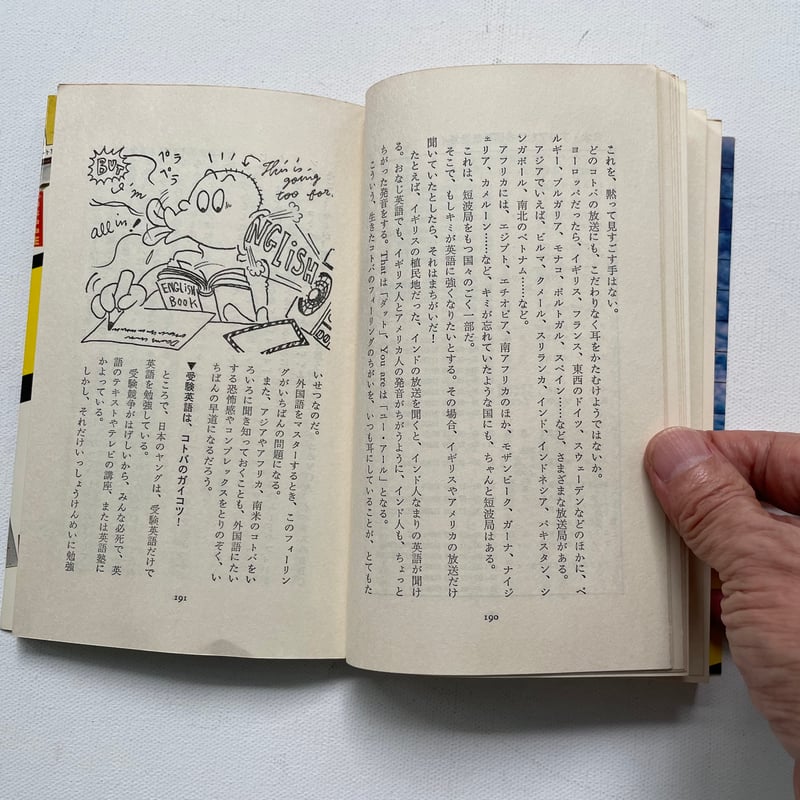 これを、黙って見すごす手はない。
どのコトバの放送にも、こだわりなく耳をかたむけようではないか。
ヨーロッパだったら、イギリス、フランス、東西のドイツ、スウェーデンなどのほかに、ベ
ルギー、ブルガリア、モナコ、ポルトガル、スペイン……など、さまざまな放送局がある。
アジアでいえば、ビルマ、クメール、スリランカ、インド、インドネシア、パキスタン、シ
ンガポール、南北のベトナム……など。
アフリカには、エジプト、エチオピア、南アフリカのほか、モザンビーク、ガーナ、ナイジ
ェリア、カメルーン……など、キミが忘れていたような国にも、ちゃんと短波局はある。
これは、短波局をもつ国々のごく一部だ。
そこで、もしキミが英語に強くなりたいとする。その場合、イギリスやアメリカの放送だけ
聞いていたとしたら、それはまちがいだ!
たとえば、イギリスの植民地だった、インドの放送を聞くと、インド人なまりの英語が聞け
る。おなじ英語でも、イギリス人とアメリカ人の発音がちがうように、インド人も、ちょっと
ちがった発音をする。That は「ダット」、You are は「ユー・アール」となる。
こういう、生きたコトバのフィーリングのちがいを、いつも耳にしていることが、とてもた
190
BUT
I'm
all in!
ペラ
ペラ
This is
going
too far.
ENGLISH
ENGLISH
BOOK
いせつなのだ。
外国語をマスターするとき、このフィーリン
グがいちばんの問題になる。
また、アジアやアフリカ、南米のコトバをい
ろいろに聞き知っておくことも、外国語にたい
する恐怖感やコンプレックスをとりのぞく、い
ちばんの早道になるだろう。
▼受験英語は、コトバのガイコツ!
ところで、日本のヤングは、受験英語だけで
英語を勉強している。
受験競争がはげしいから、みんな必死で、英
語のテキストやテレビの講座、または英語塾に
かよっている。
しかし、それだけいっしょうけんめいに勉強
191